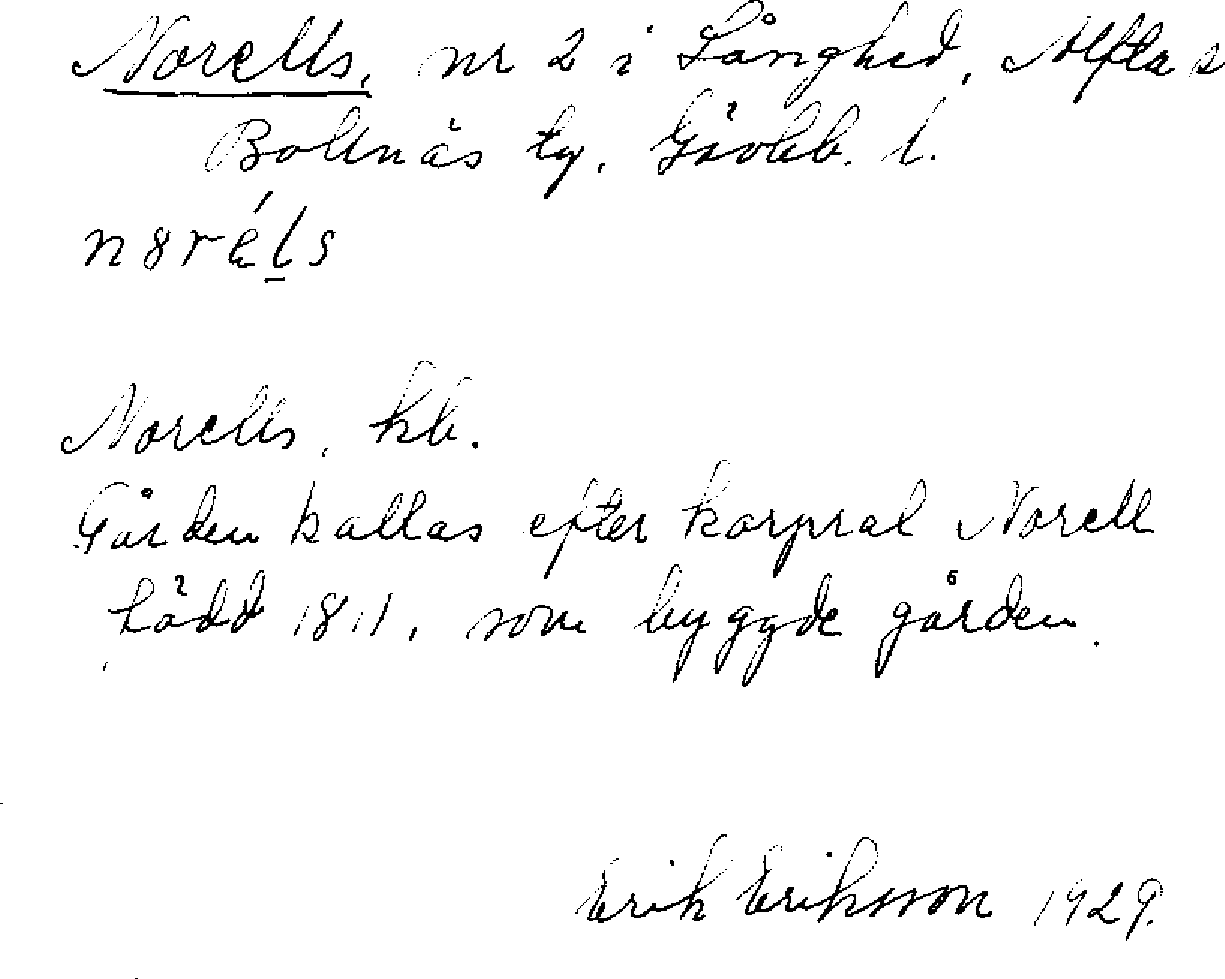 Norells, nr 2 i Långhed, Alfta s
Bollnäs tg, Gävleb. l.
n8réls
Norells, kb.
Gården kallas efter korpral Norell
född 1811, som byggde gården.
Erik Eriksson 1929.